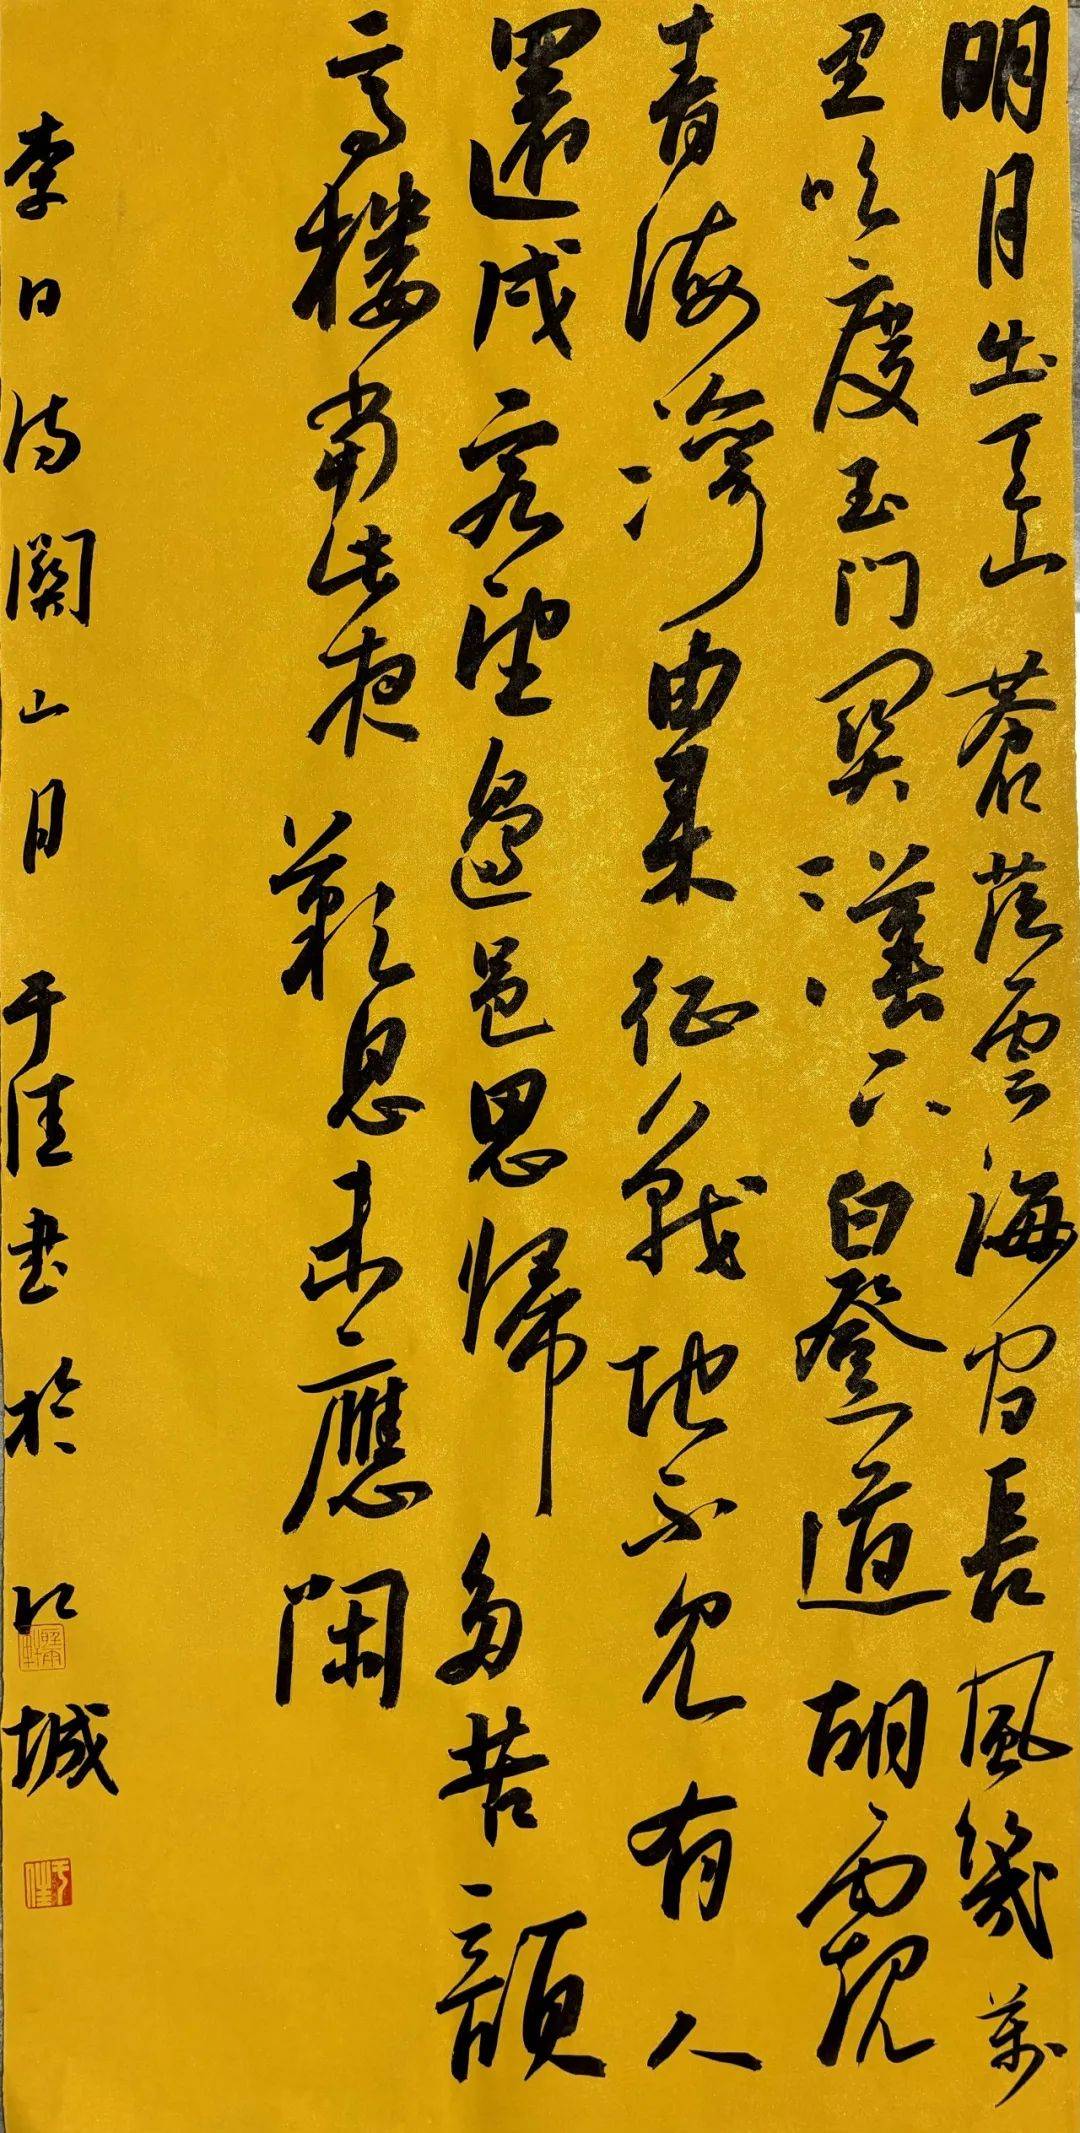 明月出天山蒼茫雲海間長風幾萬
里吹度玉門關漢下白登道胡窺
青海灣由來征戰地不見有人
還戍客望邊邑思歸多苦顏
高樓當此夜歎息未應閑
李白詩關山月于佳書於江城
于佳